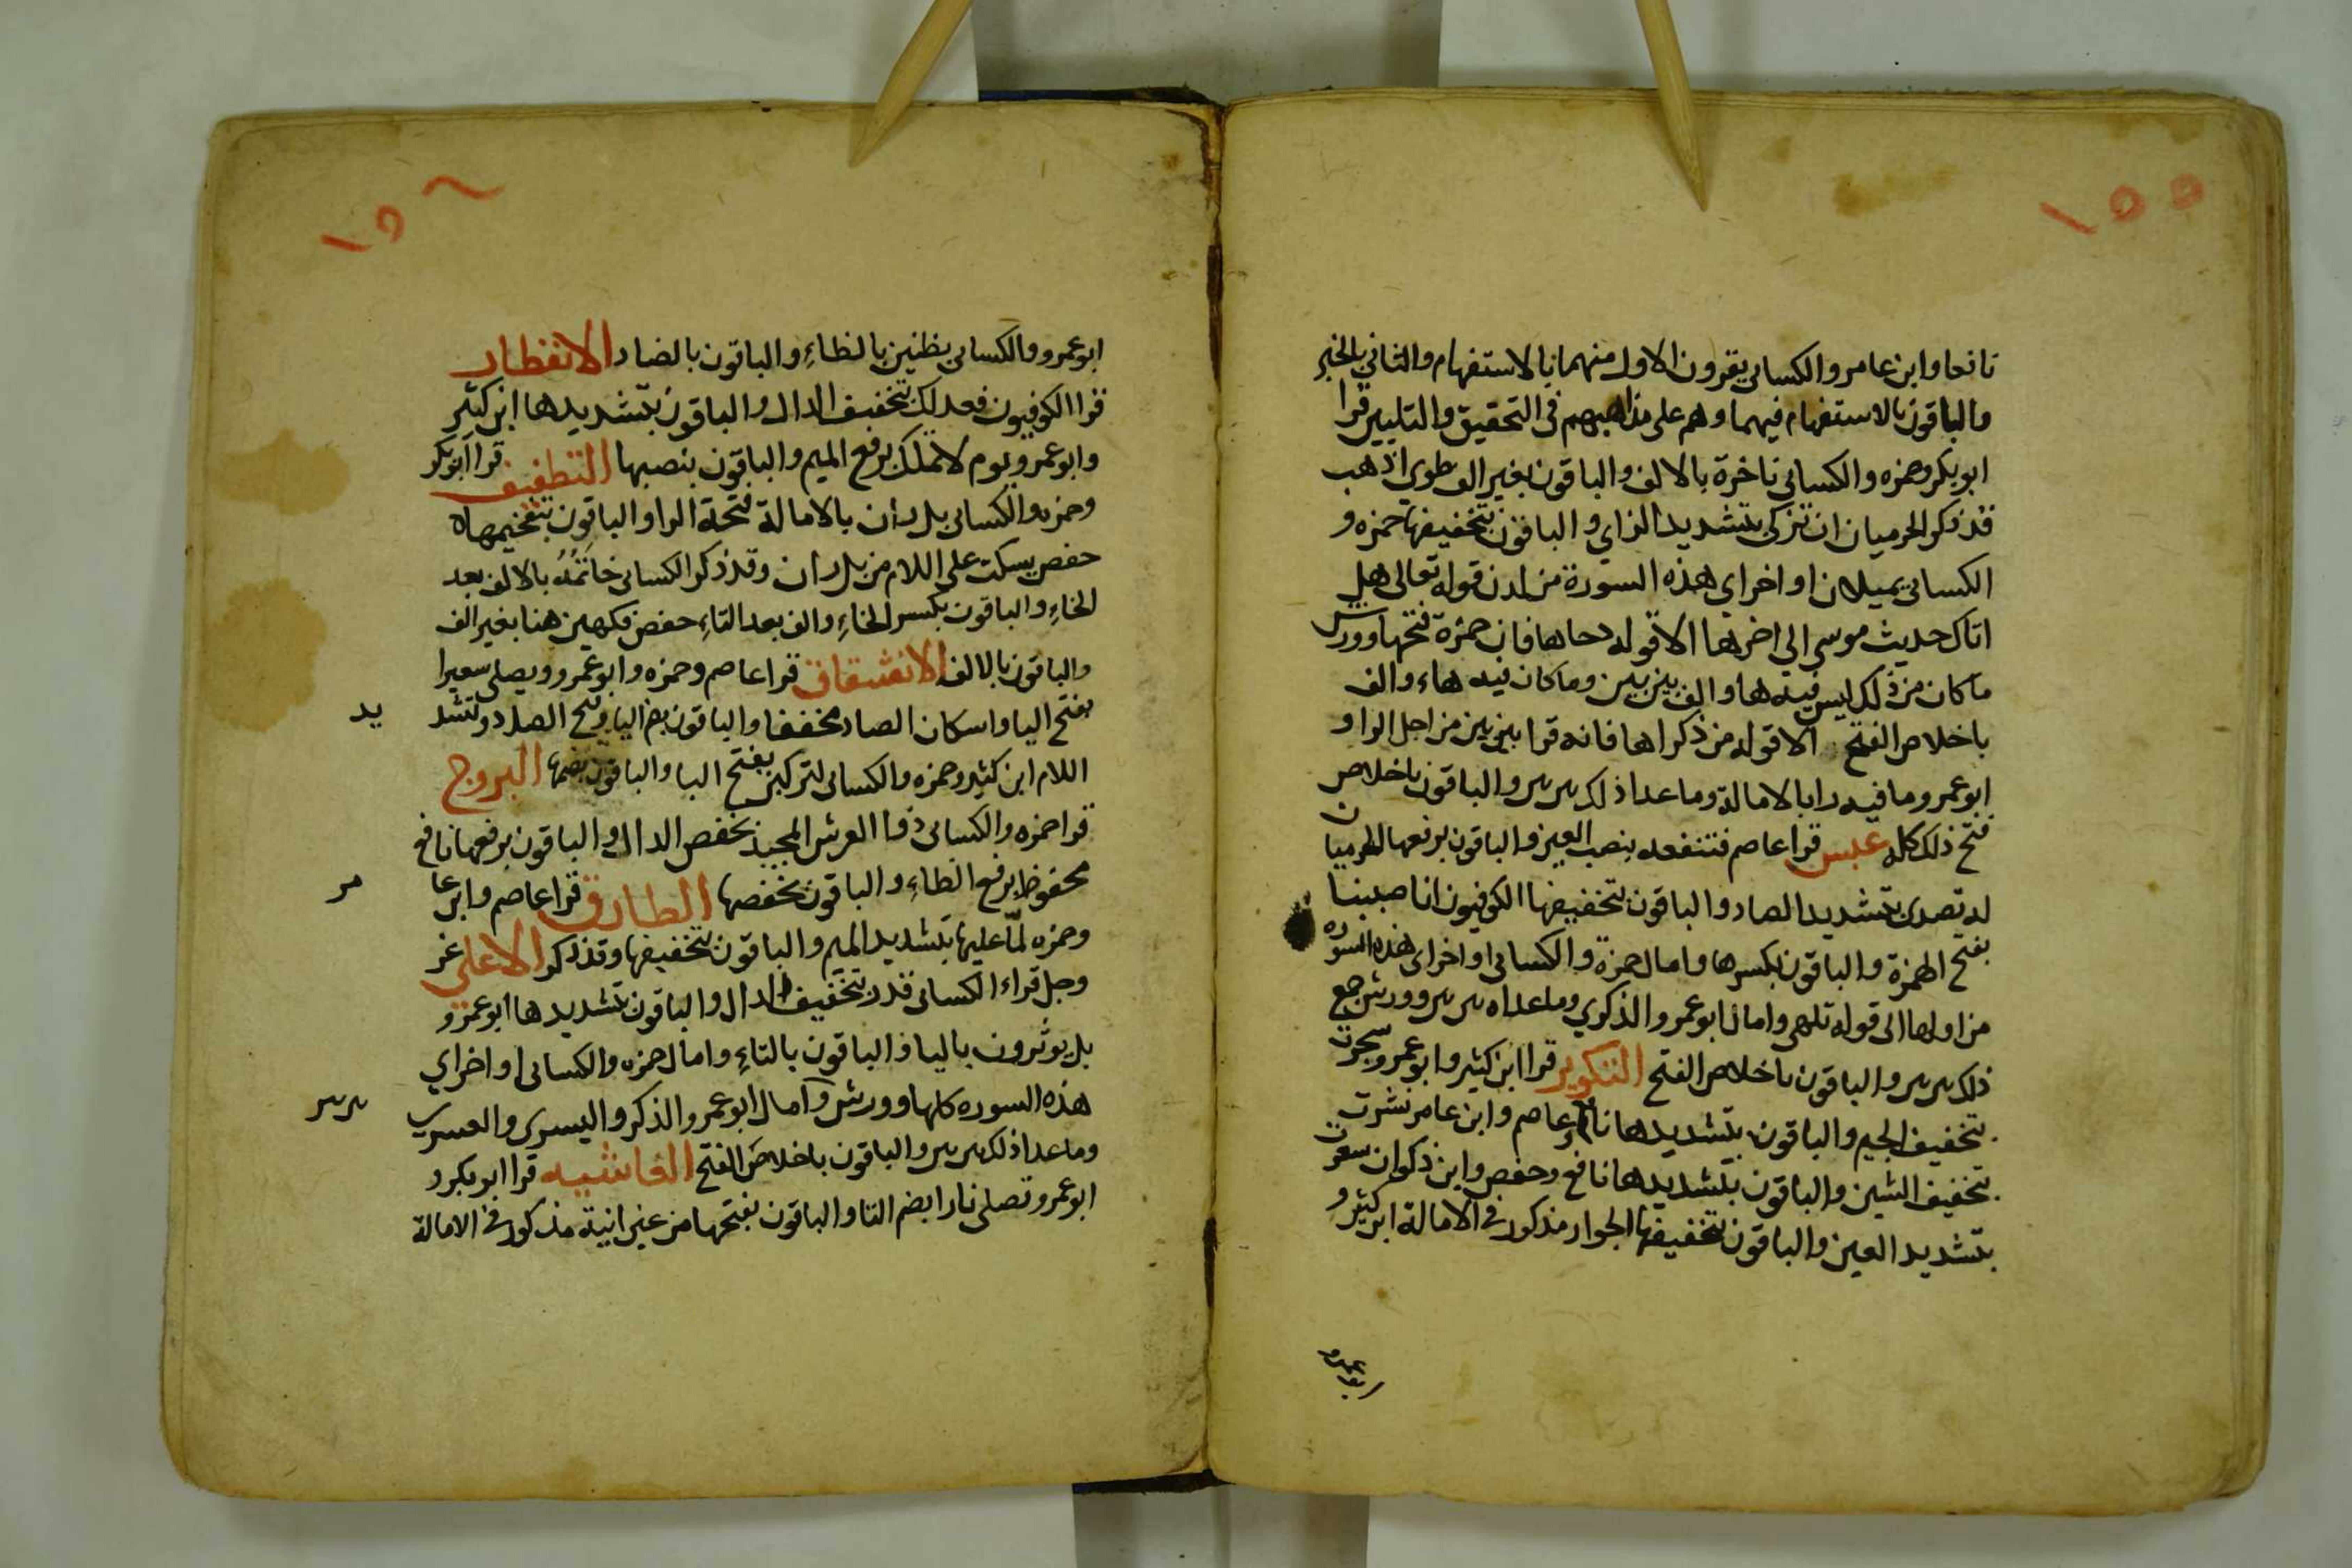 ١٥٥
نافعا وابن عامر والكسائى يقرون الاول منهما بالاستفهام والثاني بالخبر
والباقون بالاستفهام فيهما وهم على مذاهبهم فى التحقيق والتليين قرا
ابو بكر وحمزه والكسائي ناخرة بالالف والباقون بغير الف طوى اذهب
قد ذكر الحرميان ان تزكى بتشديد الزاي والباقون بتخفيفها حمزه و
الكسائى يميلان اواخر اي هذه السورة من لدن قوله تعالى هل
اتاك حديث موسى الى اخرها الا قوله دحاها فان حمزة فتحها وورش
ما كان من ذلك ليس فيه ها والف بين بين وما كان فيه هاء والف
باخلاص الفتح الا قوله من ذكراها فانه قرا بين بين من اجل الرا و
ابو عمرو ما فيه را بالامالة وما عدا ذلك بين بين والباقون باخلاص
فتح ذلك كله عبس قرا عاصم فتنفعه بنصب العين والباقون برفعها الحرميان
له تصدى بتشديد الصاد والباقون بتخفيفها الكوفيون انا صببنا
بفتح الهمزة والباقون بكسرها وامال حمزة والكسائى اواخر اى هذه السوره
من اولها الى قوله تلهى وامال ابو عمرو الذكرى وما عداه بين بين وورش جميع
ذلك بين بين والباقون باخلاص الفتح التكوير قرا ابن كثير وابو عمرو سجرت
بتخفيف الجيم والباقون بتشديدها نافع وعاصم وابن عامر نشرت
بتخفيف الشين والباقون بتشديدها نافع وحفص وابن ذكوان سعرت
بتشديد العين والباقون بتخفيفها الجوار مذكور فى الامالة ابن كثير و
١٥٦
ابو عمرو والكسائى بظنين بالظاءِ والباقون بالضاد الانفطار
قرا الكوفيون فعدلك بتخفيف الدال والباقون بتشديدها ابن كثير
وابو عمرو يوم لا تملك برفع الميم والباقون بنصبها التطفيف قرا ابو بكر
وحمزه والكسائى بل ران بالامالة فتحة الرا والباقون بتفخيمها
حفص يسكت على اللام من بل ران وقد ذكر الكسائى خاتَمُهُ بالالف بعد
الخاءِ والباقون بكسر الخاءِ والف بعد التاءِ حفص فكهين هنا بغير الف
والباقون بالالف الانشقاق قرا عاصم وحمزه وابو عمرو ويصلى سعيرا
بفتح اليا واسكان الصاد مخففا والباقون بضم اليا وفتح الصاد وتشديد
اللام ابن كثير وحمزه والكسائى لتركبن بفتح البا والباقون بضمها البروج
قرا حمزه والكسائى ذوا العرش المجيد بخفض الدال والباقون برفعها نافع
محفوظ برفع الظاءِ والباقون بخفضها الطارق قرا عاصم وابن عامر
وحمزه لمّا عليها بتشديد الميم والباقون بتخفيفها وقد ذكر الاعلى عز
وجل قراء الكسائى قدر بتخفيف الدال والباقون بتشديدها ابو عمرو
بل يوثرون باليا والباقون بالتاءِ وامال حمزه والكسائى اواخر اي
هذه السوره كلها وورش وامال ابو عمرو الذكر واليسرى والعسرى بين بين
وما عدا ذلك بين بين والباقون باخلاص الفتح الغاشيه قرا ابو بكر و
ابو عمرو تصلى نارا بضم التا والباقون بفتحها من عين انية مذكور فى الامالة